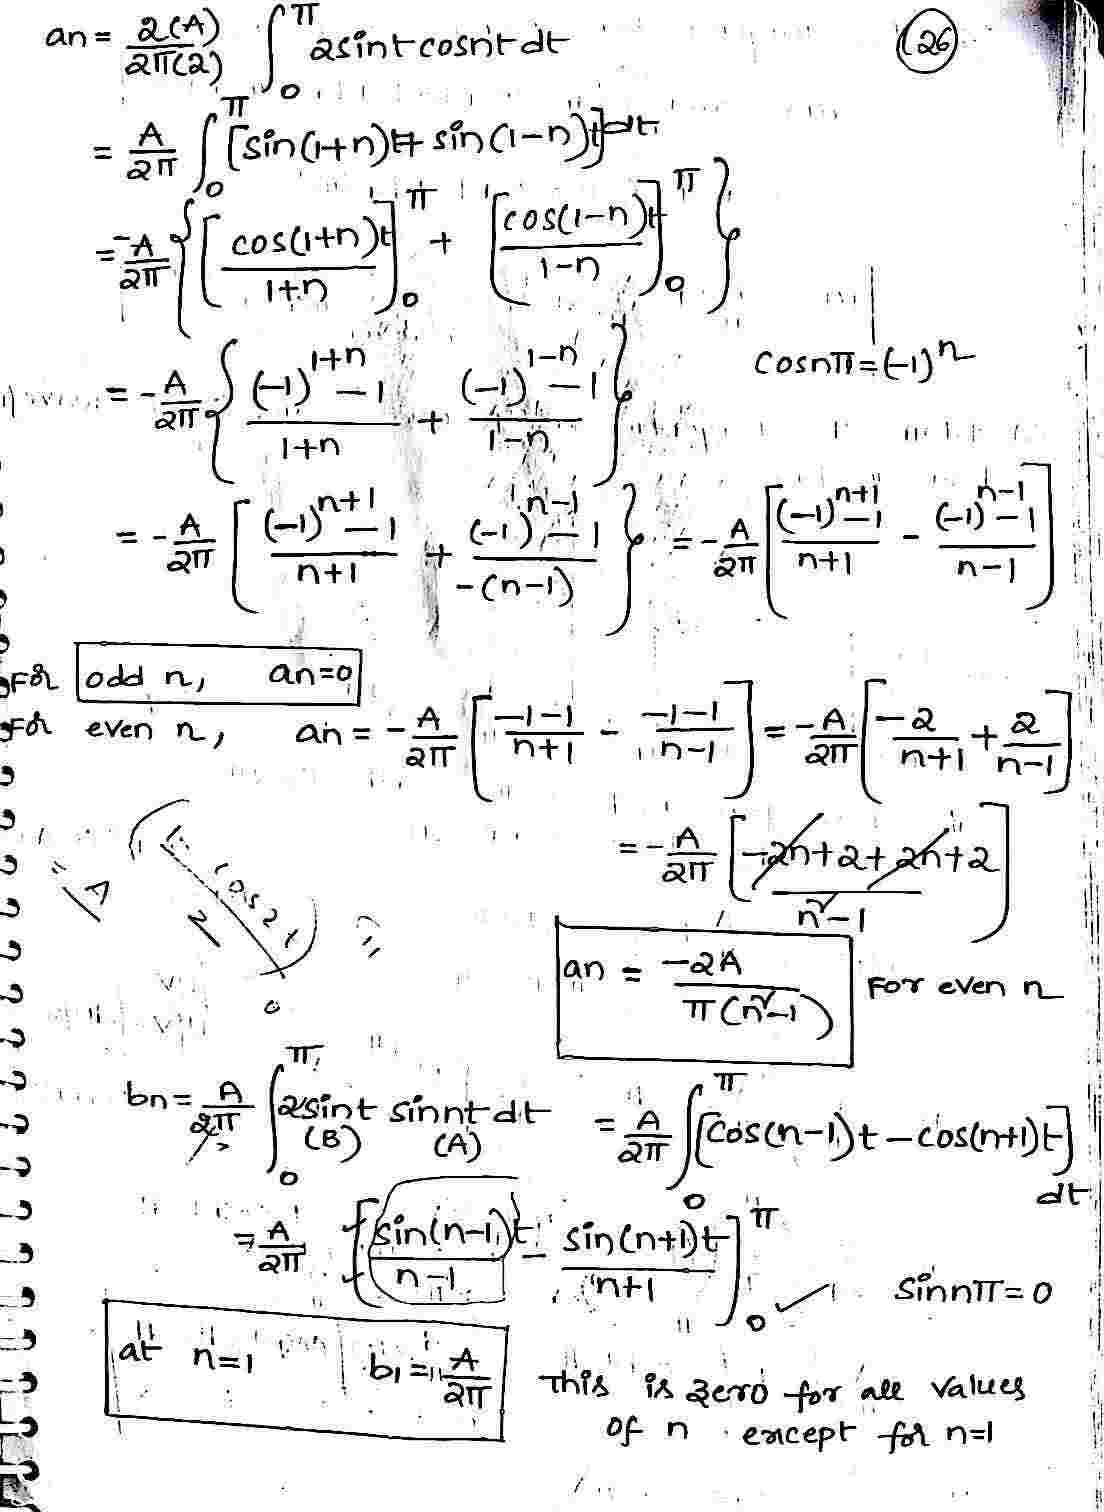 an = 2(A)/2π(2) ∫₀^π 2sint cosnt dt
(26)
= A/2π ∫₀^π [sin(1+n)t + sin(1-n)t] dt
= -A/2π {[cos(1+n)t/1+n]₀^π + [cos(1-n)t/1-n]₀^π}
= -A/2π {(-1)^1+n -1/1+n + (-1)^1-n -1/1-n}
cosnπ = (-1)^n
= -A/2π [(-1)^n+1 -1/n+1 + (-1)^n-1 -1/-(n-1)} = -A/2π [(-1)^n+1 -1/n+1 - (-1)^n-1 -1/n-1]
For odd n, an=0
For even n, an = -A/2π [-1-1/n+1 - -1-1/n-1] = -A/2π [-2/n+1 + 2/n-1]
= -A/2π [-2n+2+2n+2/n²-1]
= A (1- cos2t / 2)
0
an = -2A/π(n²-1) For even n
bn = A/2π ∫₀^π 2sint sinnt dt = A/2π ∫₀^π [cos(n-1)t - cos(n+1)t] dt
(B) (A)
= A/2π [sin(n-1)t/n-1 - sin(n+1)t/n+1]₀^π ✓ sinnπ = 0
at n=1 b1 = A/2π
This is zero for all values
of n except for n=1